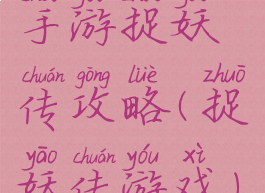 手游捉妖
chuán gōng lüè zhuō
传攻略(捉
yāo chuán yóu xì
妖传游戏)